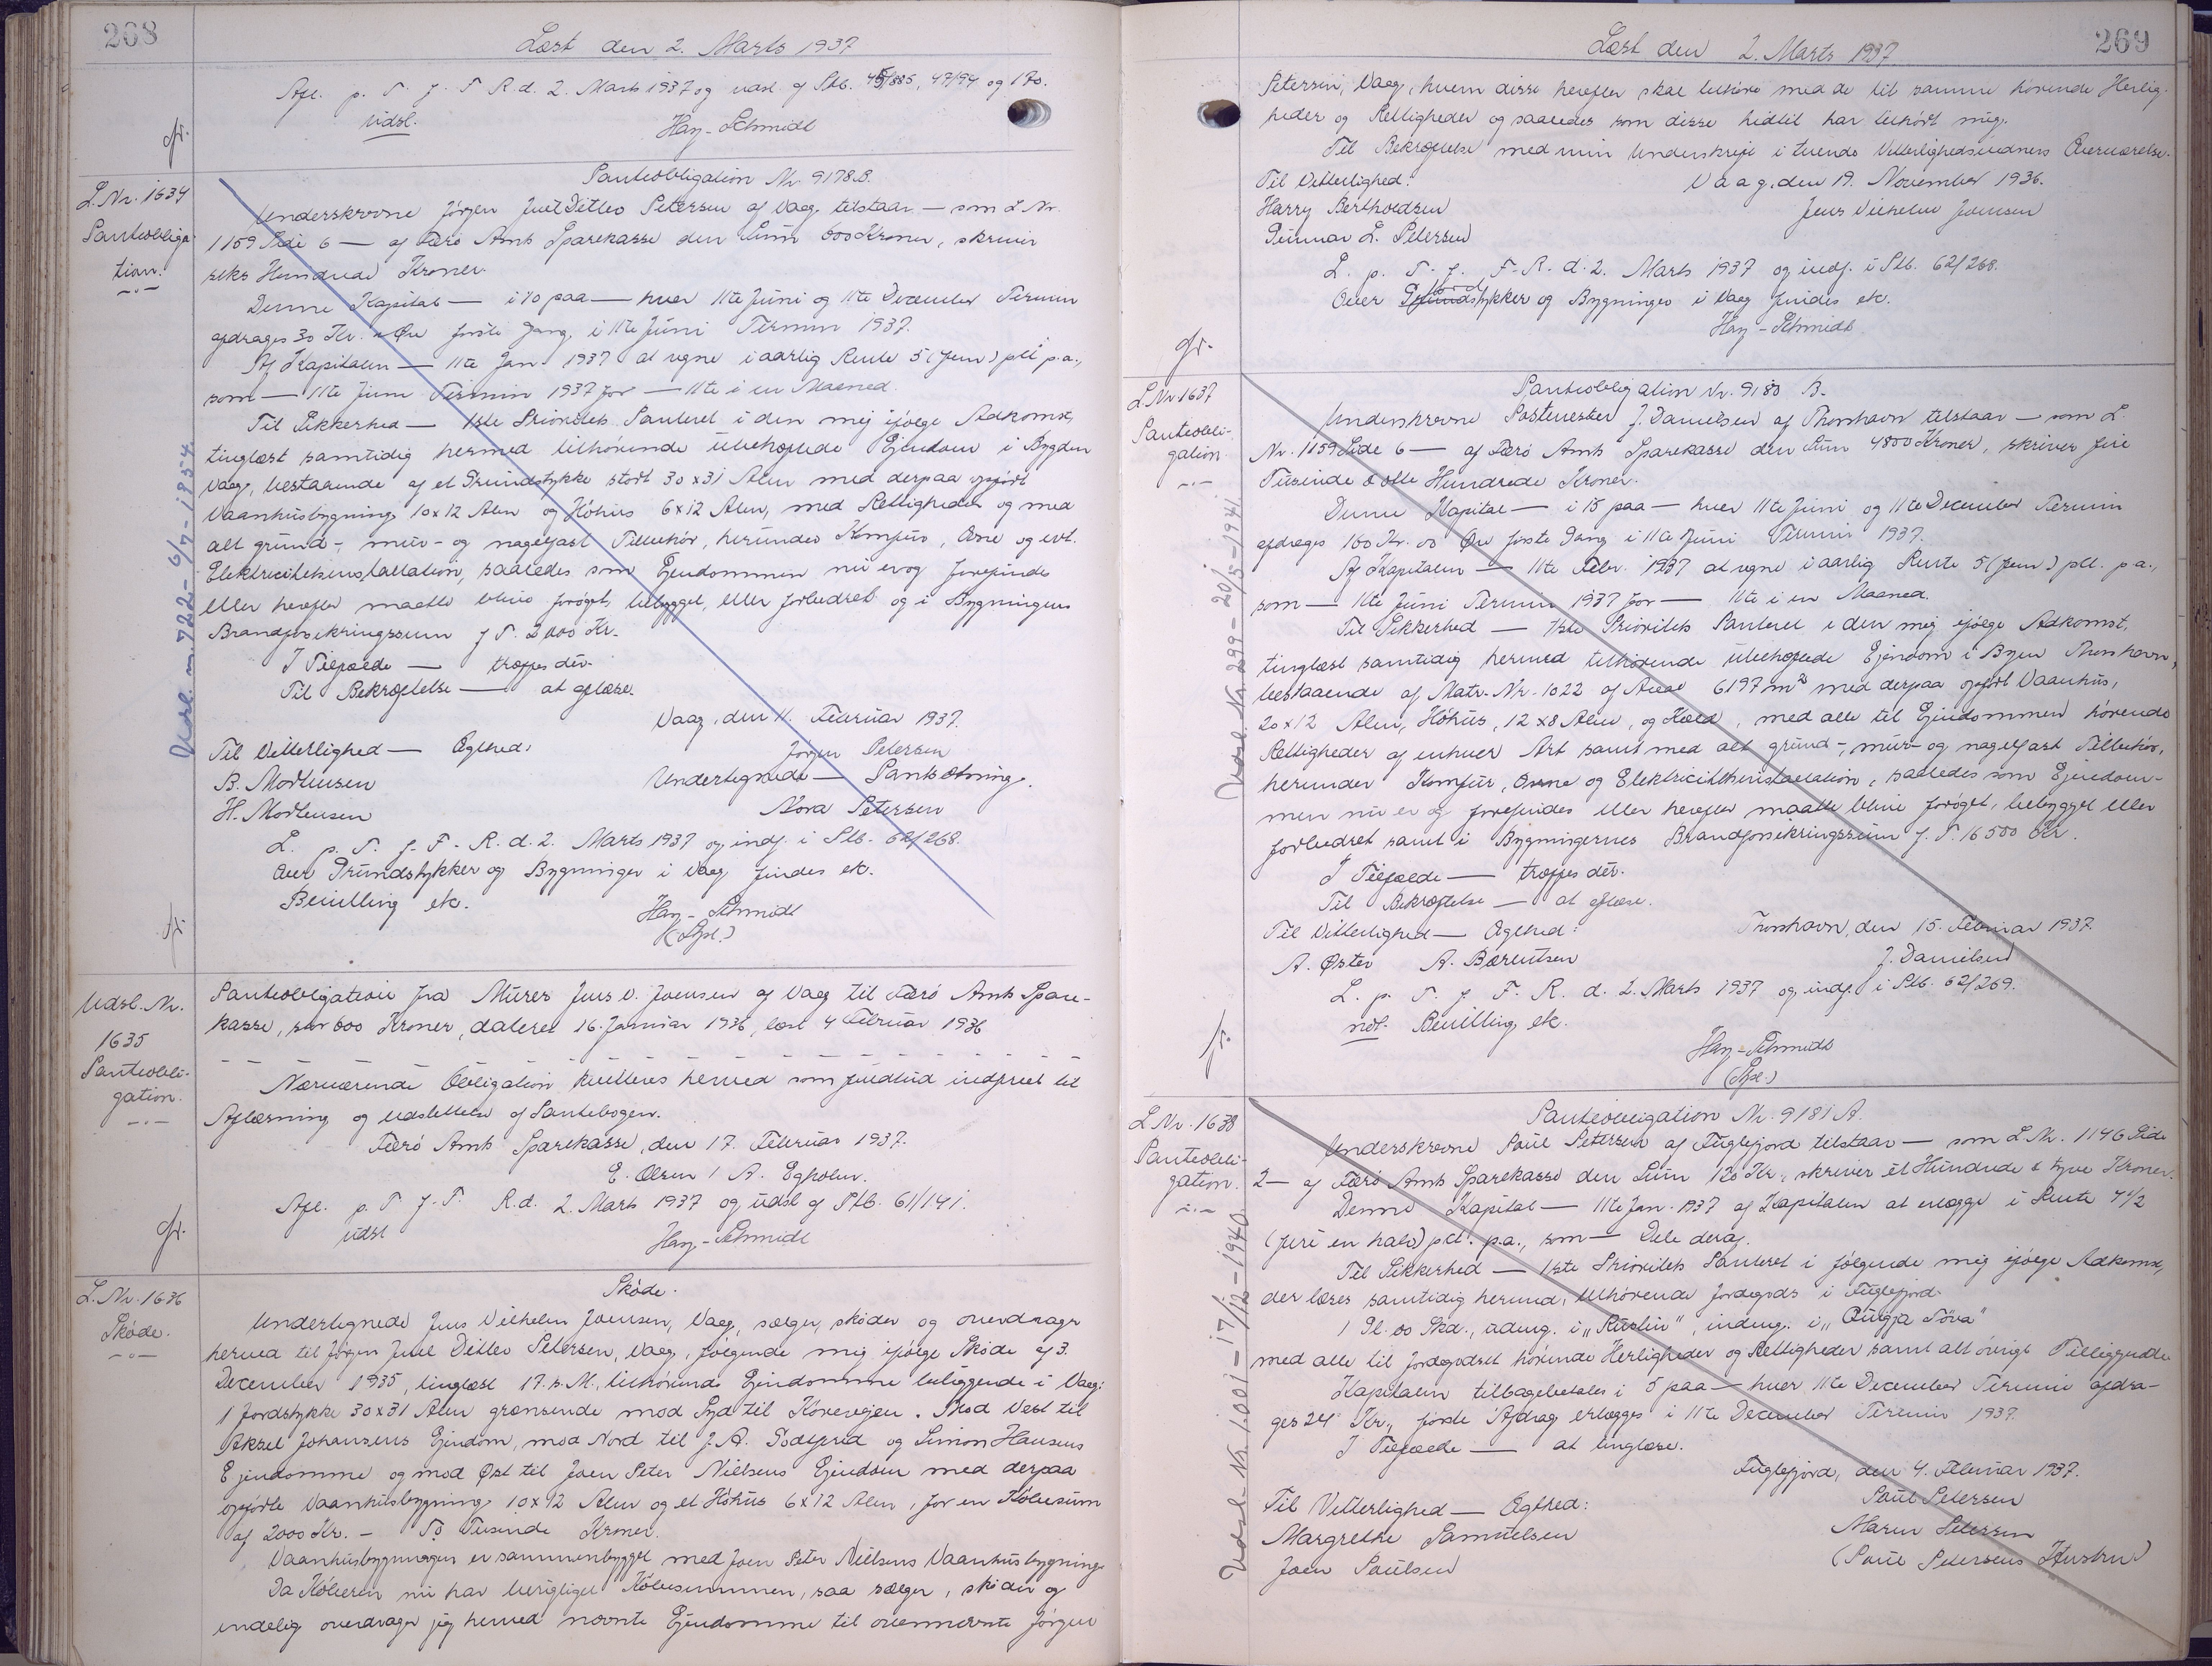 268
Læst den 2. Marts 1937
Afl. p. T. f. F. R. d. 2. Marts 1937 og udsl. af Ptb. 45/885, 47/94 og 170.
udsl.
Hay-Schmidt
gr.
L. Nr. 1634
Panteobliga
tion.
Udsl. m. 722 - 6/7 - 1854
Panteobligation Nr. 9178.B.
Underskrevne Jörgen Juel Ditlev Petersen af Vaag tilstaar — som L. Nr.
1159 Side 6 — af Færö Amts Sparekasse den Sum 600 Kroner, skriver
seks Hundrede Kroner.
Denne Kapital — i 10 paa — hver 11te Juni og 11te December Termin
afdrages 30 Kr. " Öre förste Gang i 11te Juni Termin 1937.
Af Kapitalen — 11te Jan. 1937 at regne i aarlig Rente 5 (fem) pCt p.a.,
som — 11te Juni Termin 1937 for — 11te i en Maaned.
Til Sikkerhed — 1ste Prioritets Panteret i den mig ifölge Adkomst,
tinglæst samtidig hermed tilhörende ubehæftede Ejendom i Bygden
Vaag, bestaaende af et Grundstykke stort 30 x 31 Alen med derpaa opfört
Vaanhusbygning 10 x 12 Alen og Höhus 6 x 12 Alen, med Rettigheder og med
alt grund-, mur- og nagelfast Tilbehör, herunder Komfur, Ovne og evt.
Elektricitetsinstallation, saaledes som Ejendommen nu er og forefindes
eller herefter maatte blive forøget, bebygget, eller forbedret og i Bygningens
Brandforsikringssum f. T. 2000 Kr.
I Tilfælde — træffes dér.
Til Bekræftelse — at aflæse.
Vaag, den 11. Februar 1937.
Til Vitterlighed — Ægthed:
Jörgen Petersen
B. Mortensen
Undertegnede — Pantsætning.
H. Mortensen
Nora Petersen
L. p. T. f. F. R. d. 2. Marts 1937 og indf. i Ptb. 62/268.
Over Grundstykker og Bygninger i Vaag findes ek.
Bevilling ek.
Hay-Schmidt
(Sgl.)
gr.
Udsl. Nr.
1635
Panteobli-
gation.
Panteobligation fra Murer Jens V. Joensen af Vaag til Færö Amts Spare-
kasse, stor 600 Kroner, dateret 16. Januar 1936, læst 4 Februar 1936
Nærværende Obligation kvitteres herved som fuldtud indfriet til
Aflæsning og Udslettelse af Pantebogen.
Færö Amts Sparekasse, den 17. Februar 1937.
E. Olsen / A. Egholm.
Afl. p. T. f. F. R. d. 2. Marts 1937 og udsl. af Ptb. 61/141.
udsl
Hay-Schmidt
gr.
L. Nr. 1636
Sköde.
Sköde.
Undertegnede Jens Vilhelm Joensen, Vaag, sælger, sköder og overdrager
herved til Jörgen Juel Ditlev Petersen, Vaag, fölgende mig ifölge Sköde af 3.
December 1935, tinglæst 17. s. M., tilhörende Ejendomme beliggende i Vaag:
1 Jordstykke 30 x 31 Alen grænsende mod Syd til Körevejen. Mod Vest til
Aksel Johansens Ejendom, mod Nord til J. A. Godtfred og Simon Hansens
Ejendomme og mod Øst til Joen Peter Nielsens Ejendom med derpaa
opførte Vaanhusbygning 10 x 12 Alen og et Höhus 6 x 12 Alen, for en Köbesum
af 2000 Kr. - To Tusinde Kroner.
Vaanhusbygningen er sammenbygget med Joen Peter Nielsens Vaanhusbygning.
Da Köberen nu har berigtiget Köbesummen, saa sælger, sköder og
endelig overdrager jeg herved nævnte Ejendomme til ovennævnte Jörgen
269
Læst den 2. Marts 1937
Petersen, Vaag, hvem disse herefter skal tilhöre med de til samme hörende Herlig-
heder og Rettigheder og saaledes som disse hidtil har tilhört mig.
Til Bekræftelse med min Underskrift i tvende Vitterlighedsvidners Overværelse.
Til Vitterlighed:
Vaag, den 19. November 1936.
Harry Bertholdsen
Jens Vilhelm Joensen
Gunnar L. Petersen
L. p. T. f. F. R. d. 2. Marts 1937 og indf. i Ptb. 62/268.
Over Grundstykker og Bygninger i Vaag findes ek.
Hay-Schmidt
gr.
L. Nr. 1637
Panteobli-
gation
Udsl. Nr. 299 - 20/5 - 1941
Panteobligation Nr. 9180 B.
Underskrevne Postmester J. Danielsen af Thorshavn tilstaar — som L.
Nr. 1159 Side 6 — af Færö Amts Sparekasse den Sum 4800 Kroner, skriver fire
Tusinde & otte Hundrede Kroner.
Denne Kapital — i 15 paa — hver 11te Juni og 11te December Termin
afdrages 160 Kr. 00 Öre förste Gang i 11te Juni Termin 1937.
Af Kapitalen — 11te Febr. 1937 at regne i aarlig Rente 5 (fem) pCt. p.a.,
som — 11te Juni Termin 1937 for — 11te i en Maaned.
Til Sikkerhed — 1ste Prioritets Panteret i den mig ifölge Adkomst,
tinglæst samtidig hermed tilhörende ubehæftede Ejendom i Byen Thorshavn,
bestaaende af Matr. Nr. 1022 af Areal 6197 m² med derpaa opfört Vaanhus,
20 x 12 Alen, Höhus, 12 x 8 Alen, og Kæld, med alle til Ejendommen hörende
Rettigheder af enhver Art samt med alt grund-, mur- og nagelfast Tilbehör,
herunder Komfur, Ovne og Elektricitetsinstallation, saaledes som Ejendom-
men nu er og forefindes eller herefter maatte blive forøget, bebygget eller
forbedret samt i Bygningernes Brandforsikringssum f. T. 16500 Kr.
I Tilfælde — træffes dér.
Til Bekræftelse — at aflæse.
Til Vitterlighed — Ægthed:
Thorshavn, den 15. Februar 1937.
A. Øster A. Bærentsen
J. Danielsen
L. p. T. f. F. R. d. 2. Marts 1937 og indf. i Ptb. 62/269.
not. Bevilling ek.
Hay-Schmidt
(Sgl.)
gr.
L. Nr. 1638
Panteobli-
gation.
Udsl. Nr. 1001 - 17/12 - 1940.
Panteobligation Nr. 9181 A.
Underskrevne Poul Petersen af Fuglefjord tilstaar — som L. Nr. 1146 Side
2 — af Færö Amts Sparekasse den Sum 120 Kr., skriver et Hundrede & tyve Kroner.
Denne Kapital — 11te Jan. 1937 af Kapitalen at erlægge i Rente 4 1/2
(fire en halv) pCt. p.a., som — Dele deraf.
Til Sikkerhed — 1ste Prioritets Panteret i fölgende mig ifölge Adkomst,
der læses samtidig hermed, tilhörende Jordegods i Fuglefjord:
med alle til Jordegodset hörende Herligheder og Rettigheder samt alt övrigt Tilliggende
Kapitalen tilbagebetales i 5 paa — hver 11te December Termin afdra-
ges 24 Kr., förste Afdrag erlægges i 11te December Termin 1937.
I Tilfælde — at tinglæse.
Fuglefjord, den 4. Februar 1937.
Til Vitterlighed — Ægthed:
Poul Petersen
Margrethe Samuelsen
Maren Petersen
Joen Poulsen
(Poul Petersens Hustru)